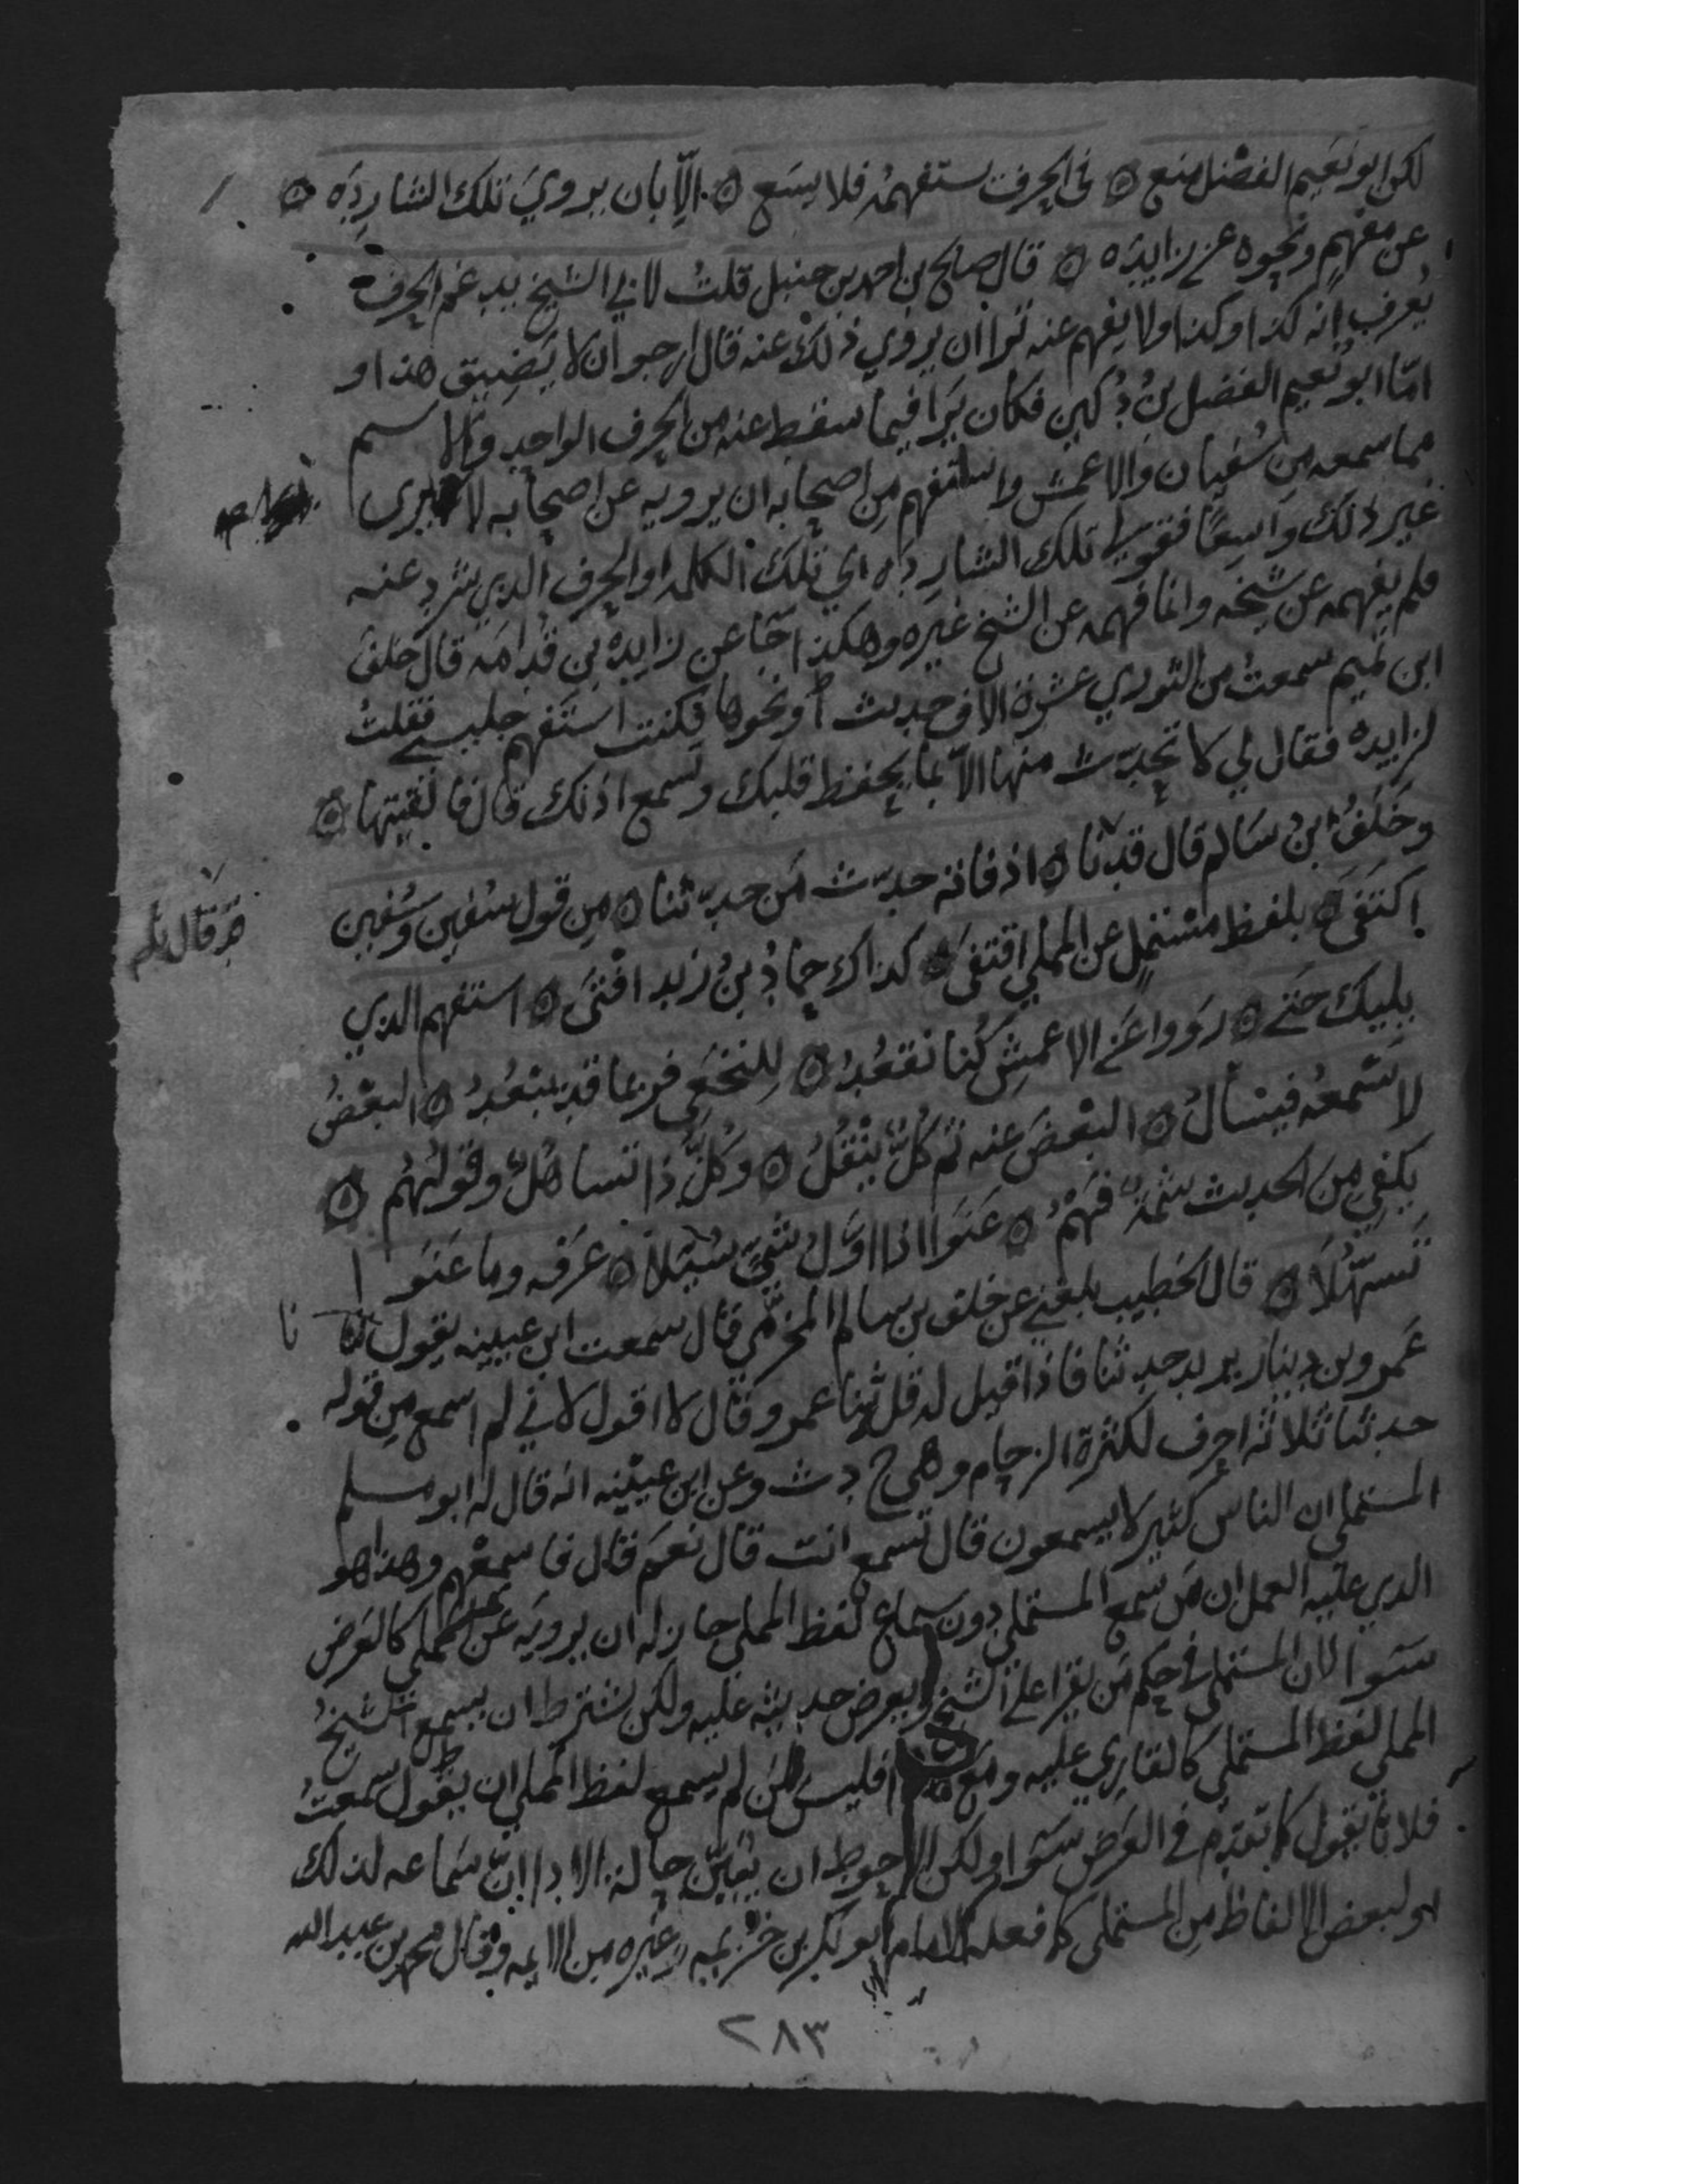 لكن ابو نعيم الفضل منع ۞ في الحرف يستفهمه فلا يسع ۞ الا بان يروي تلك الشارده ۞
عن مفهم ونحوه عن زايده ۞ قال صالح بن احمد بن حنبل قلت لابي الشيخ يدغم الحرف
يعرف انه كذا وكذا ولا يفهم عنه ترا ان يروي ذلك عنه قال ارجو ان لا يضيق هذا و
امّا ابو نعيم الفضل بن دكين فكان يرا فيما سقط عنه من الحرف الواحد والاسم
مما سمعه من سفيان والاعمش واستفهم من اصحابه ان يرويه عن اصحابه لا يرى
غير ذلك واسعًا فقولي تلك الشارده اي تلك الكلمه او الحرف الذي شرد عنه
فلم يفهمه عن شيخه وانما فهمه عن الشيخ غيره وهكذا جا عن زايده بن قدامه قال خلف
ابن تميم سمعت من الثوري عشرة الاف حديث او نحوها فكنت استفهم جليسي فقلت
لزايده فقال لي لا تحدّث منها الاّ بما يحفظ قلبك وتسمع اذنك قال فالقيتها ۞
وخلف بن سالم قال قد نا ۞ اذ فاته حدّث من حدّثنا ۞ من قول سفين وسفين
اكتفى ۞ بلفظ مستمل عن المملي اقتفى ۞ كذاك حماد بن زيد افتى ۞ استفهم الذي
يليك حتى ۞ رووا عن الاعمش كنا نقعد ۞ للنخعي فربما قد يبعد ۞ البعض
لا يسمعه فيسأل ۞ البعض عنه ثم كلّ ينقل ۞ وكلّ ذا تساهل وقولهم ۞
يكفي من الحديث شمّه فهم ۞ عنوا اذا اوّل شيّ سئلا ۞ عرفه وما عنوا
تسهّلا ۞ قال الخطيب بلغني عن خلف بن سالم المخرّمي قال سمعت ابن عيينه يقول نا
عمرو بن دينار يريد حدثنا فاذا قيل له قل ثنا عمرو قال لا اقول لاني لم اسمع من قوله
حدثنا ثلاثة احرف لكثرة الزحام وهي ح د ث وعن ابن عيينه انه قال له ابو مسلم
المستملي ان الناس كثير لا يسمعون قال تسمع انت قال نعم قال فاسمعهم وهذا هو
الذي عليه العمل ان من سمع المستملي دون سماع لفظ المملي جاز له ان يرويه عن المملي كالعرض
سوا لان المستملي في حكم من يقرا على الشيخ ويعرض حديثه عليه ولكن يشترط ان يسمع الشيخ
المملي لفظ المستملي كالقاري عليه ومع هذا فليس لمن لم يسمع لفظ المملي ان يقول سمعت
فلانا يقول كما تقدّم في العرض سوا ولكن الاحوط ان يبيّن حالة الادا انّ سماعه لذلك
او لبعض الالفاظ من المستملي كما فعله الامام ابو بكر بن خزيمه وغيره من الايمه وقال محمد بن عبد الله
٢٨٣